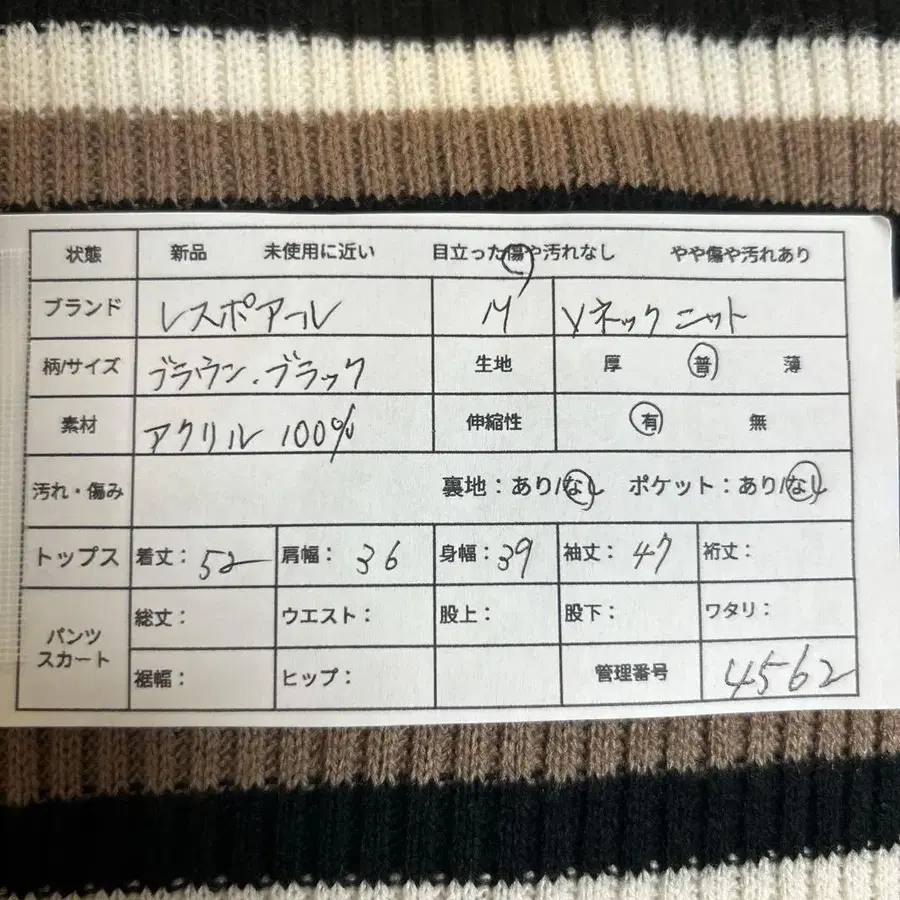 状態 新品 未使用に近い 目立った傷や汚れなし やや傷や汚れあり
ブランド レスポアール M Vネックニット
柄/サイズ ブラウン・ブラック 生地 厚 普 薄
素材 アクリル 100% 伸縮性 有 無
汚れ・傷み 裏地：あり/なし ポケット：あり/なし
トップス 着丈：52 肩幅：36 身幅：39 袖丈：47 裄丈：
パンツ スカート 総丈： ウエスト： 股上： 股下： ワタリ：
裾幅： ヒップ： 管理番号 4562